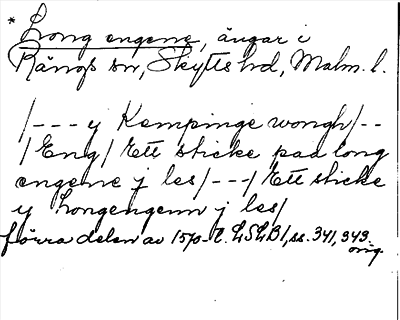 * Long engene, ängar i
Rängs sn, Skytts hd, Malm. l.
/--- y Kempinge wongh/--
/Eng/ Ett sticke paa long
engene j les/---/Ett sticke
y Longengenn j les/
förra delen av 1570-t. LSLB1, ss. 341, 343.
orig.